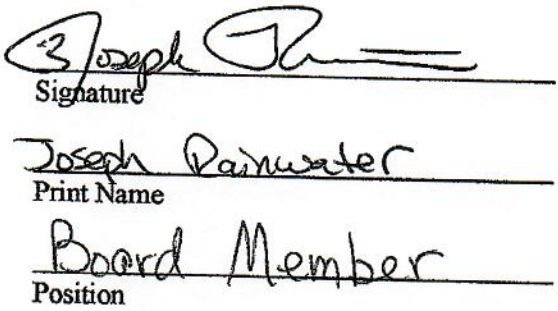 Joseph
Signature
Joseph Rainwater
Print Name
Board Member
Position